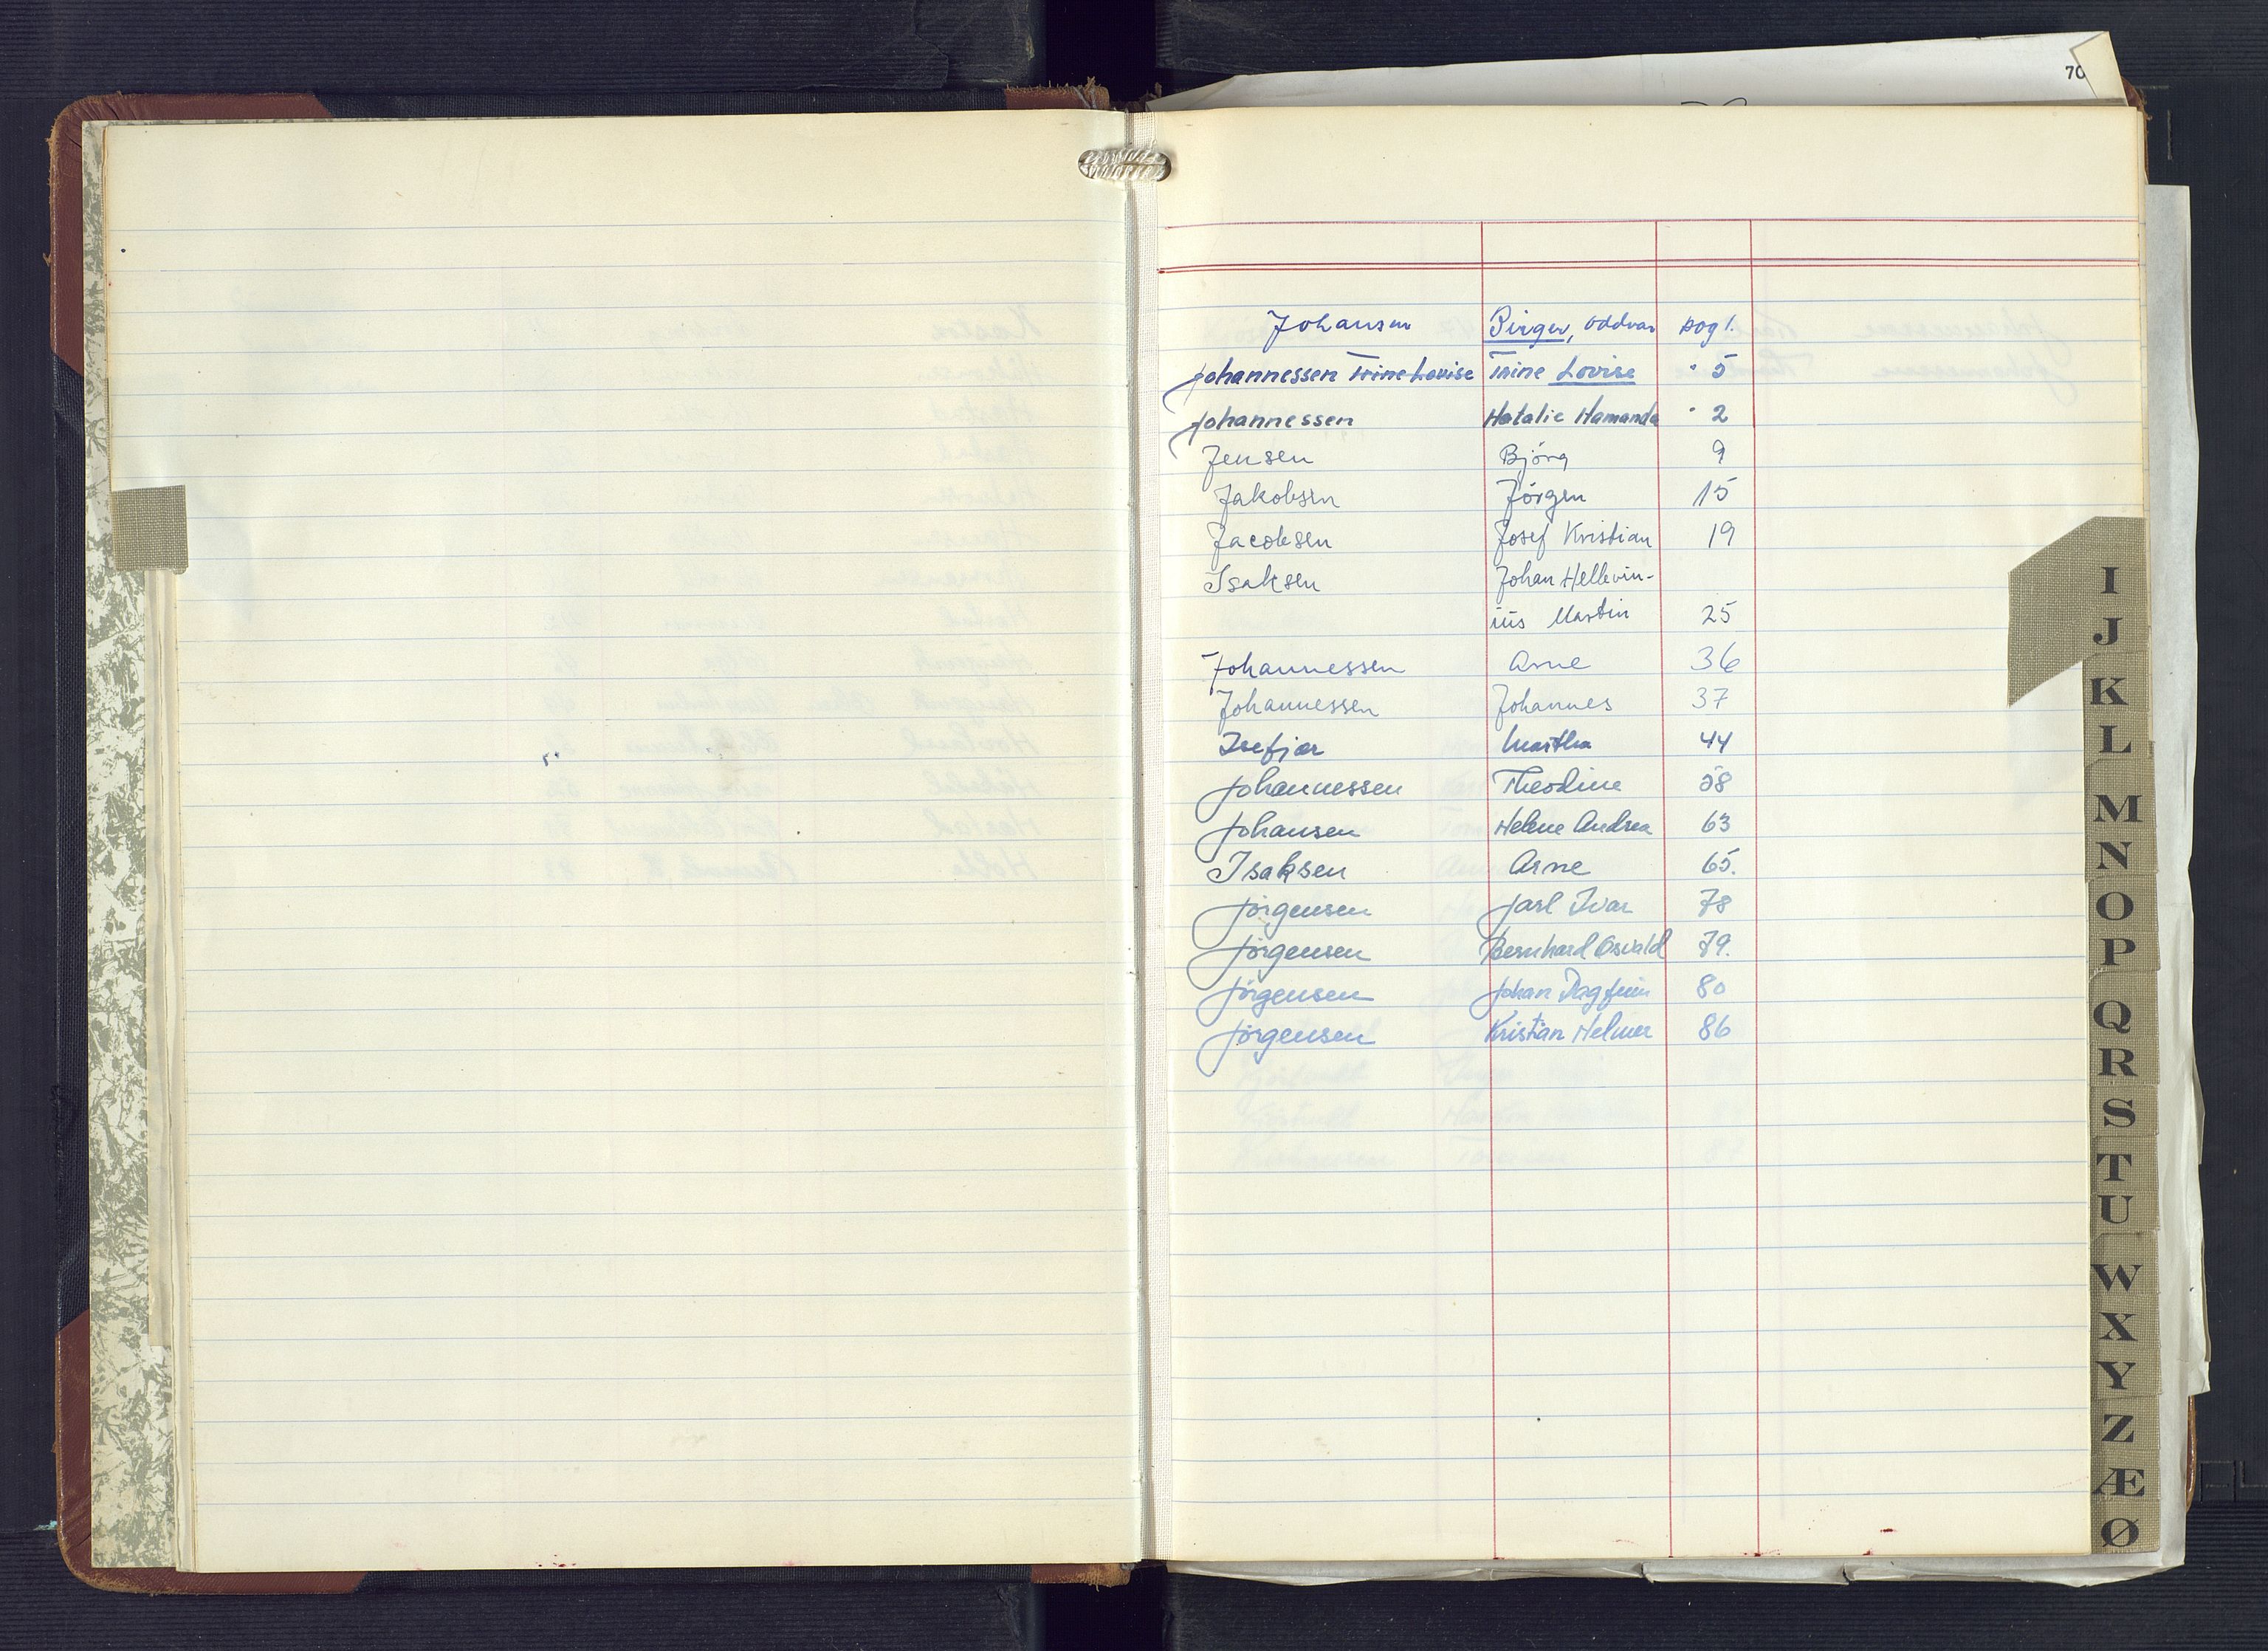 70
Johansen Birger, Oddvar pag 1.
Johannessen Trine Lovise Trine Lovise " 5
Johannessen Natalie Hamanda " 2
Jensen Björg 9
Jakobsen Jörgen 15
Jacobsen Josef Kristian 19
Isaksen Johan Hellevin-
ius Martin 25
Johannessen Arne 36
Johannessen Johannes 37
Isefjær Martha 44
Johannessen Theodine 58
Johansen Helene Andrea 63
Isaksen Arne 65.
Jörgensen Jarl Ivar 78
Jörgensen Bernhard Osvald 79.
Jörgensen Johan Dagfinn 80
Jörgensen Kristian Helmer 86
I
J
K
L
M
N
O
P
Q
R
S
T
U
W
X
Y
Z
Æ
Ø